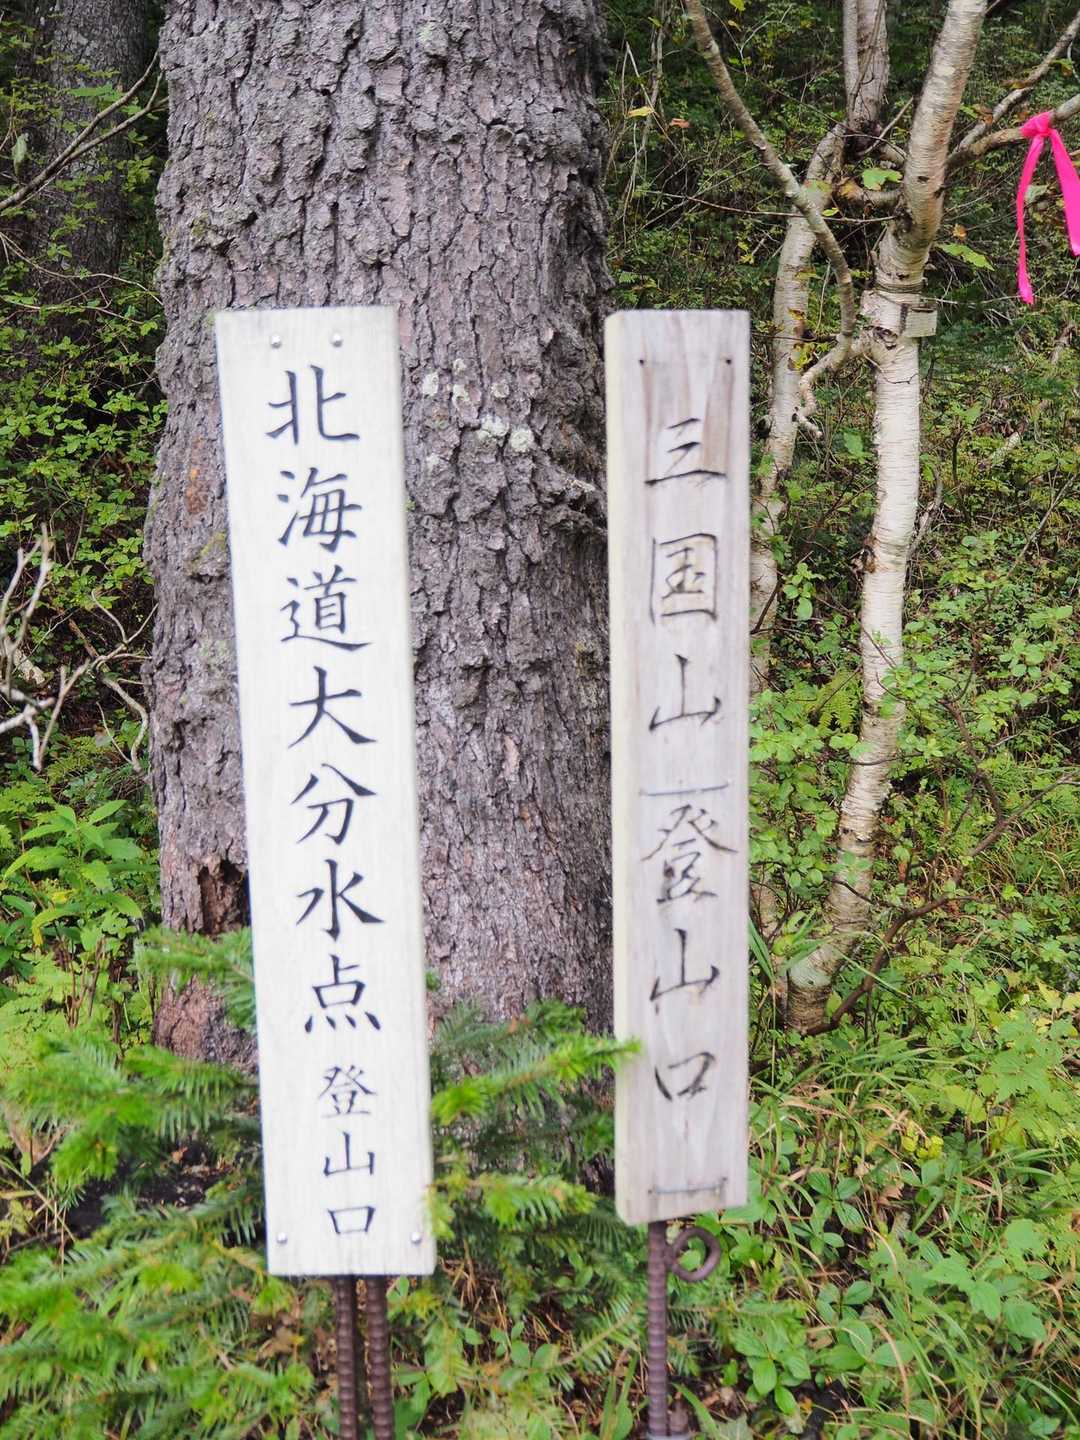 北海道大分水点 登山口
三国山登山口